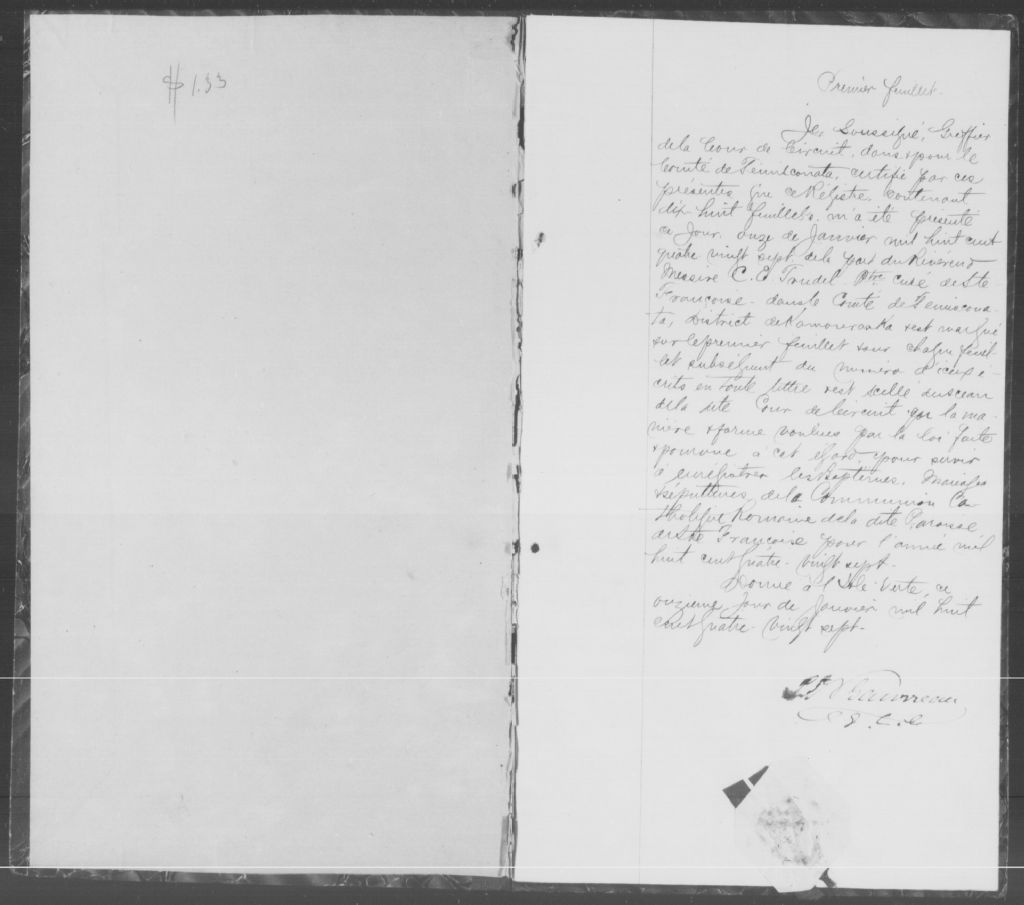 $ 1.33
Premier feuillet.
Je, Soussigné, Greffier
de la Cour de Circuit, dans & pour le
Comté de Témiscouata, certifie par ces
présentes que ce Régistre, contenant
dix-huit feuillets, m'a été présenté
ce jour, onze de Janvier mil huit cent
quatre vingt sept, de la part du Révérend
Messire C. E. Trudel Ptre curé de Ste
Françoise - dans le Comté de Temiscoua-
ta, District de Kamouraska & est marqué
sur le premier feuillet & sur chaque feuil-
let subséquent du numéro d'iceux é-
crits en toute lettre & est scellé du sceau
de la dite Cour de Circuit par la ma-
nière & forme voulues par la loi faite
& pourvue à cet égard, pour servir
à enrégistrer les Baptêmes, Mariages
& sépultures, de la Communion Ca-
tholique Romaine de la dite Paroisse
de Ste Françoise pour l'année mil
huit cent quatre-vingt sept.
Donné à l'Isle Verte, ce
onzieme jour de Janvier mil huit
cent quatre-vingt sept.